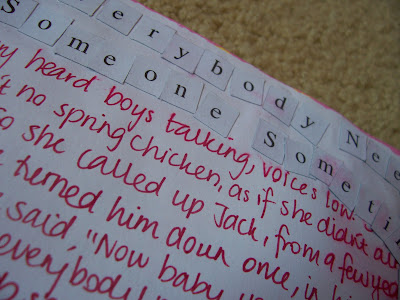 verybody Nee
Someone Someti
ry heard boys talking, voices low.
t no spring chicken, as if she didn't al
so she called up Jack, from a few yea
turned him down once, in
said, "Now baby
everybody